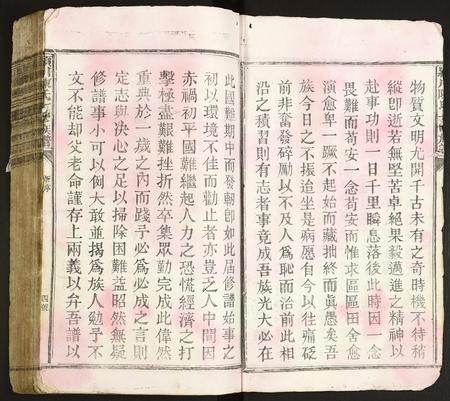 物質文明尤開千古未有之奇時機不待稍
縱卽逝若無堅苦卓絕果毅邁進之精神以
赴事功則一日千里瞬息落後此時因一念
畏難而苟安一念苟安而惟求區區田舍愈
演愈卑一蹶不起始而藏拙終而眞愚矣吾
族今日之不振迨坐是病愿自今以往痛砭
前非奮發碎勵以不及人爲恥而治前此相
沿之積習則有志者事竟成吾族光大必在
此國難期中而發朝卽如此屆修譜始事之
初以環境不佳而勸止者亦豈乏人中間因
赤禍初平國難繼起人力之恐慌經濟之打
擊極盡艱難挫折然卒集眾勤完成此偉然
重典於一歲之內而踐予必爲必成之言則
定志與決心之足以掃除困難益昭然無疑
修譜事小可以例大敢並揭爲族人勉予不
文不能却父老命謹存上兩義以弁吾譜以
四